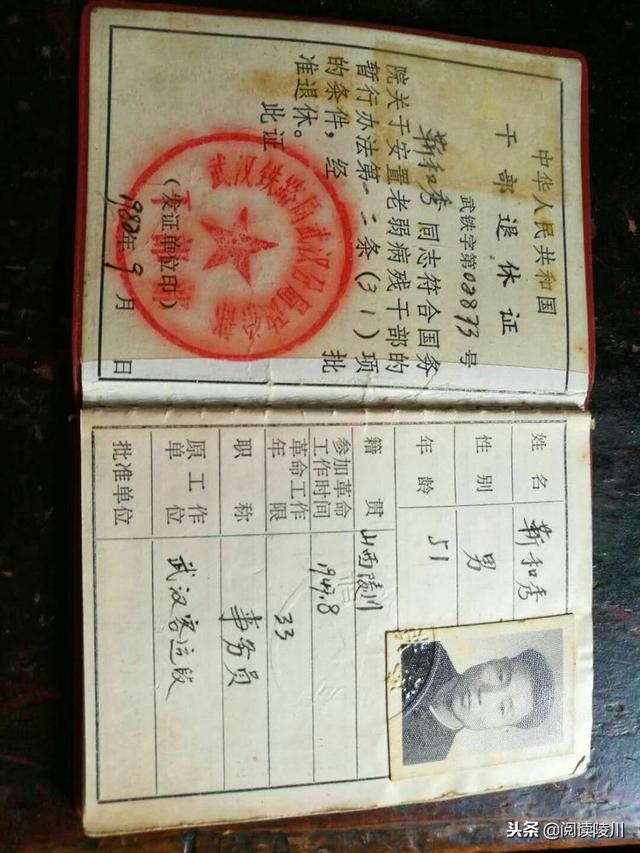 中华人民共和国
干部退休证
武铁字第02873号
靳和秀同志符合国务
院关于安置老弱病残干部的
暂行办法第一条(31)项
的条件，经 批
准退休。
此证
武汉铁路局武汉分局政治部
(发证单位印)
1980年9月 日
姓名 靳和秀
性别 男
年龄 51
籍贯 山西陵川
参加革命工作时间 1947.8
革命工作年限 33
职称 事务员
原工作单位 武汉客运段
批准单位
头条 @阅读陵川